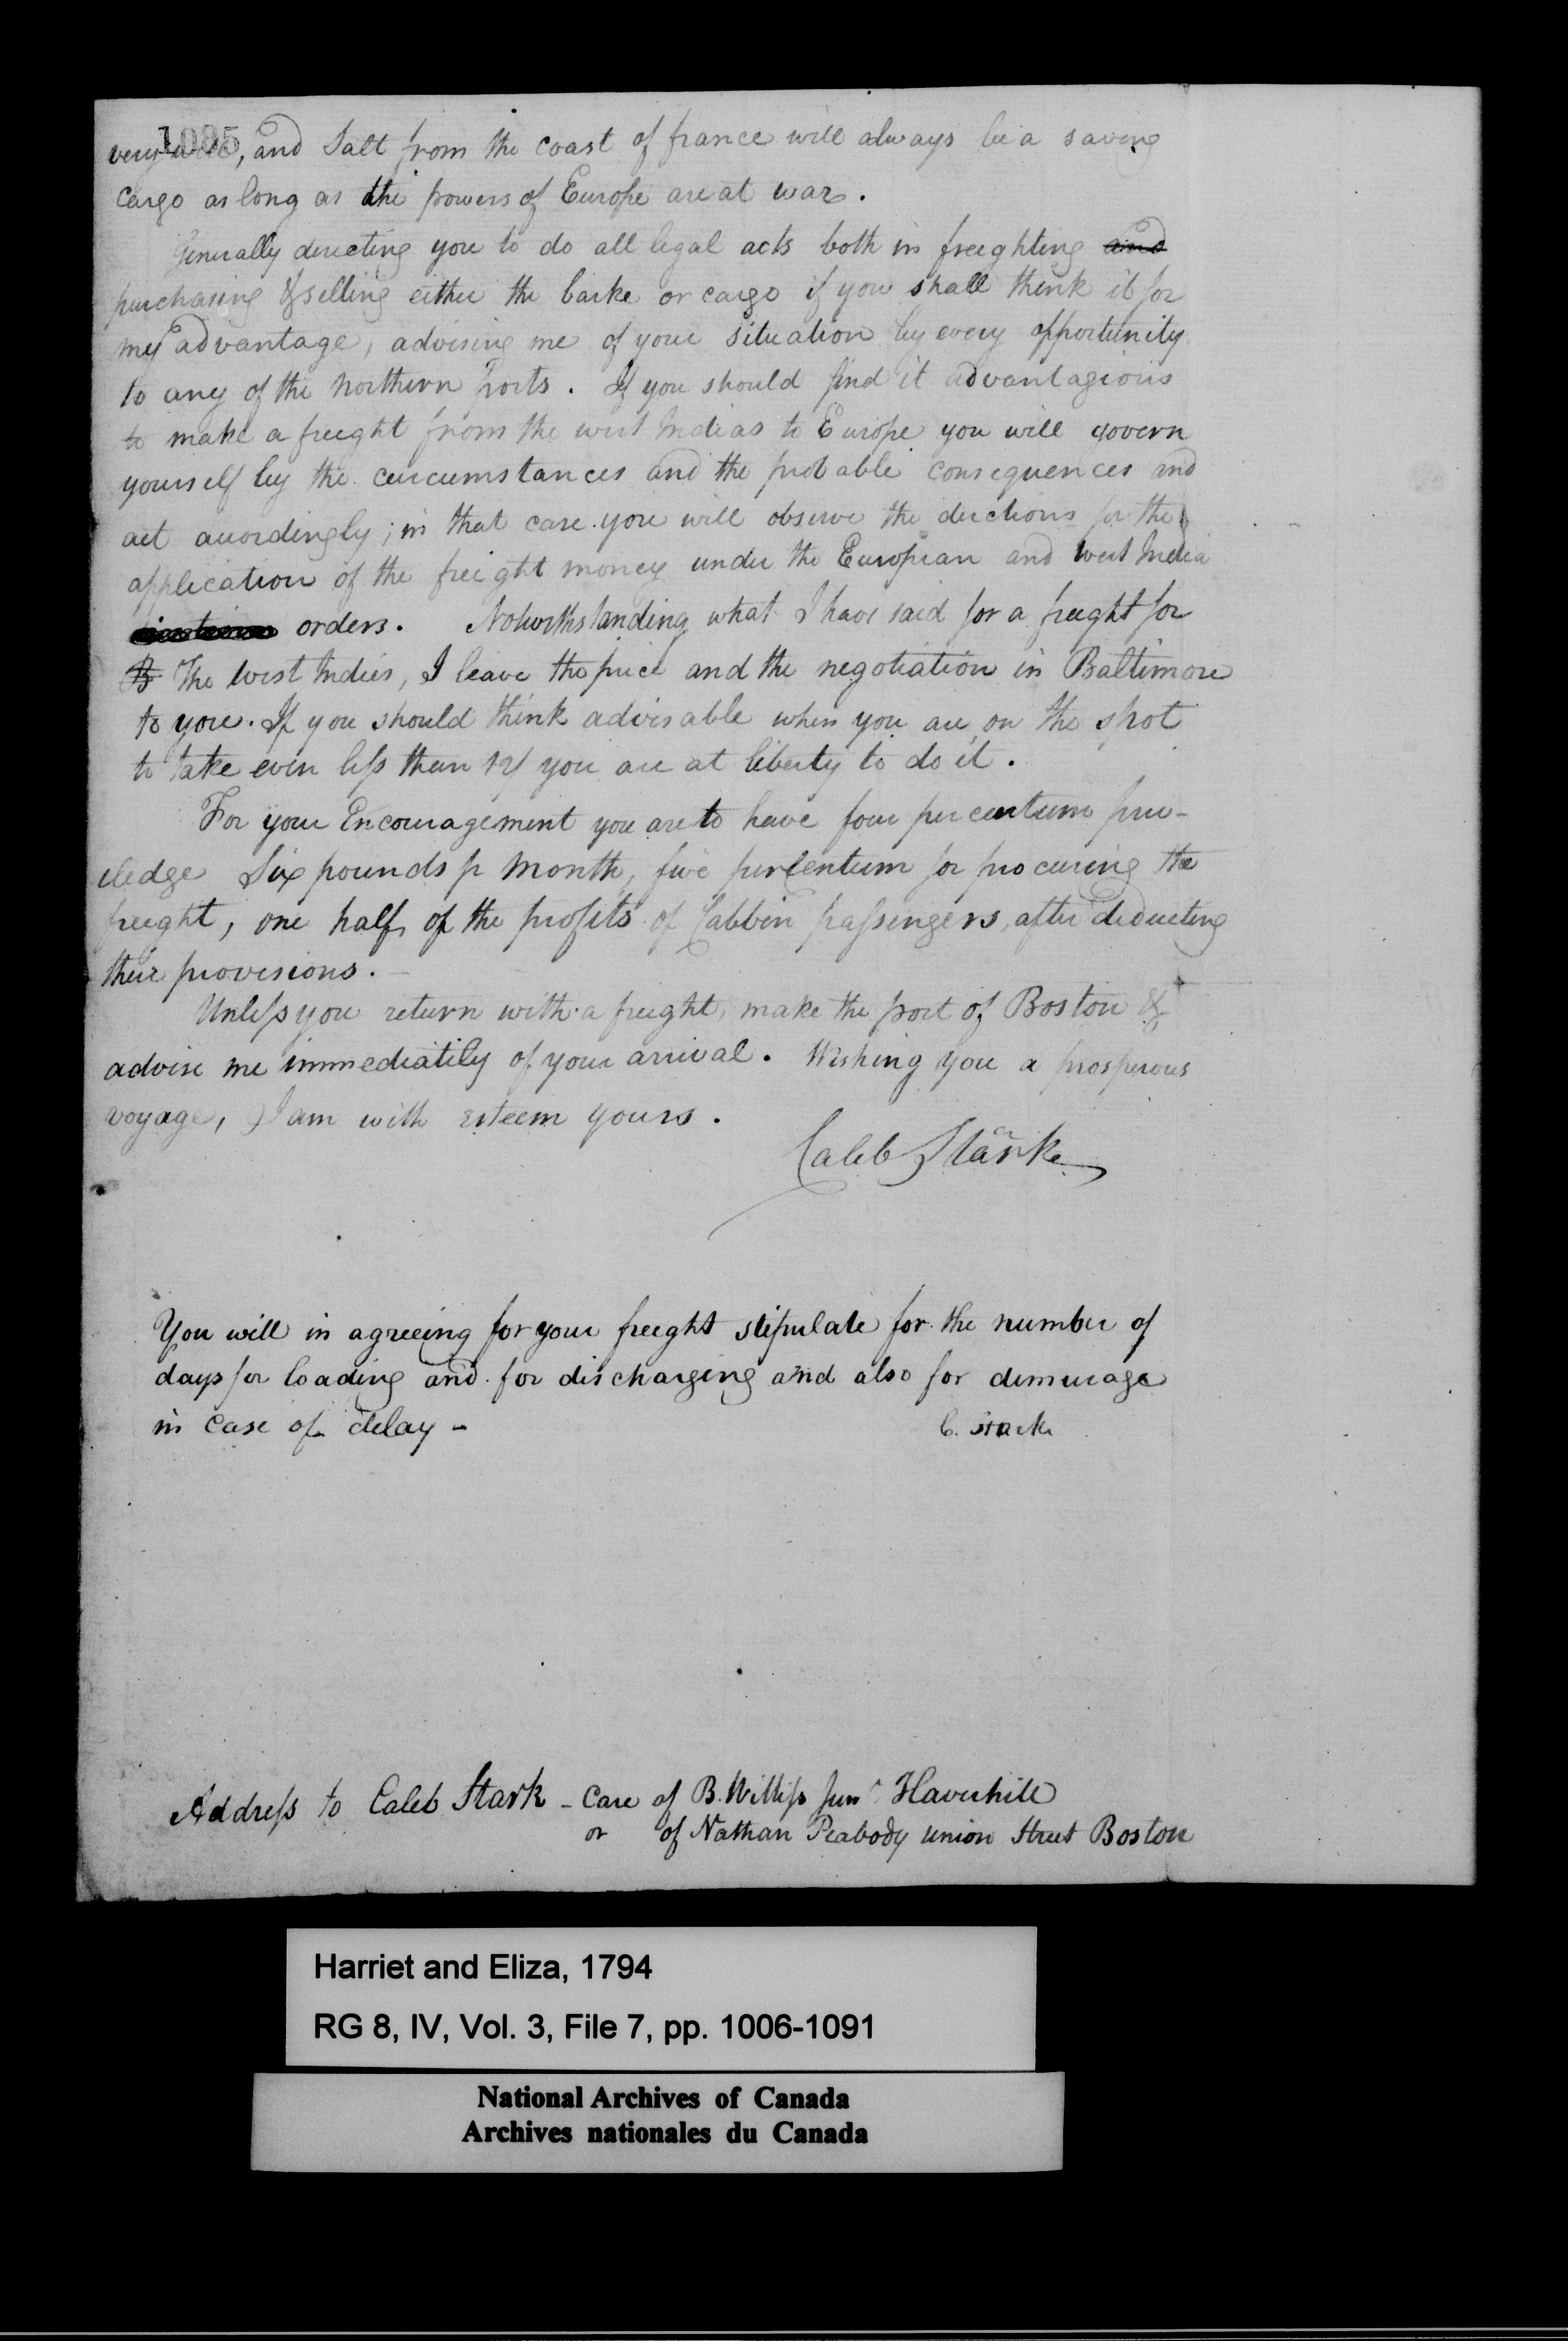 1085
very well, and Salt from the coast of france will always be a saving
Cargo as long as the powers of Europe are at war.
Generally directing you to do all legal acts both in freighting and
purchasing & selling either the barke or cargo if you shall think it for
my advantage, advising me of your situation by every opportunity
to any of the Northern Ports. If you should find it advantagious
to make a freight from the west Indias to Europe you will govern
yourself by the circumstances and the probable consequences and
act accordingly; in that case you will observe the dirctions for the
application of the freight money under the European and West India
orders. Notwithstanding what I have said for a freight for
The West Indies, I leave the price and the negotiation in Baltimore
to you. If you should think advisable when you are on the spot
to take even less than 12/ you are at liberty to do it.
For your Encouragement you are to have four per centum priv-
iledge Six pounds pr Month, five per Centum for procuring the
freight, one half of the profits of Cabbin passengers, after deducting
their provisions.
Unless you return with a freight, make the port of Boston &
advise me immediatily of your arrival. Wishing you a prosperous
voyage, I am with esteem yours.
Caleb Stark
You will in agreeing for your freight stipulate for the number of
days for loading and for discharging and also for demurage
in case of delay -
C. Stark
Address to Caleb Stark - Care of B. Willis Junr. Haverhill
or of Nathan Peabody Union Street Boston
Harriet and Eliza, 1794
RG 8, IV, Vol. 3, File 7, pp. 1006-1091
National Archives of Canada
Archives nationales du Canada